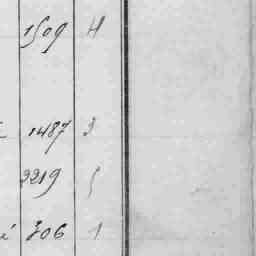 1509 H
1487 3
2219 5
é 306 1